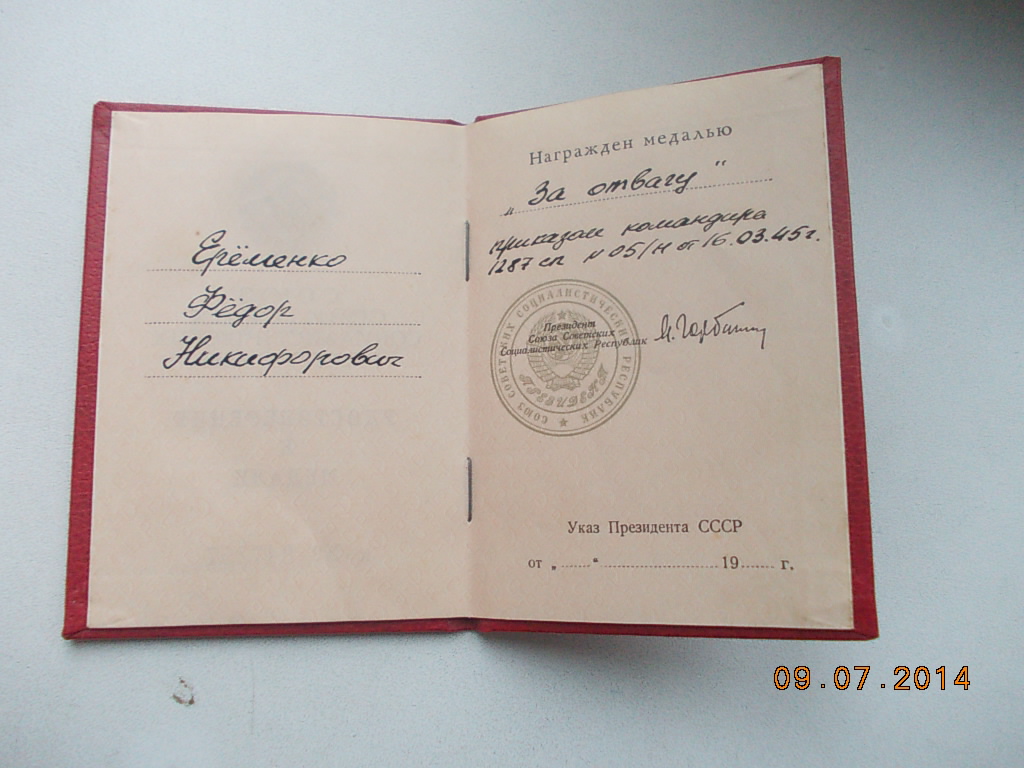 Ерёменко
Фёдор
Никифорович
Награжден медалью
„За отвагу“
приказом командира
1287 сп N 05/н от 16.03.45г.
СОЮЗ СОВЕТСКИХ СОЦИАЛИСТИЧЕСКИХ РЕСПУБЛИК
Президент
Союза Советских
Социалистических Республик
ПРЕЗИДЕНТ
М. Горбачев
Указ Президента СССР
от „......“ ........................ 19...... г.
09.07.2014